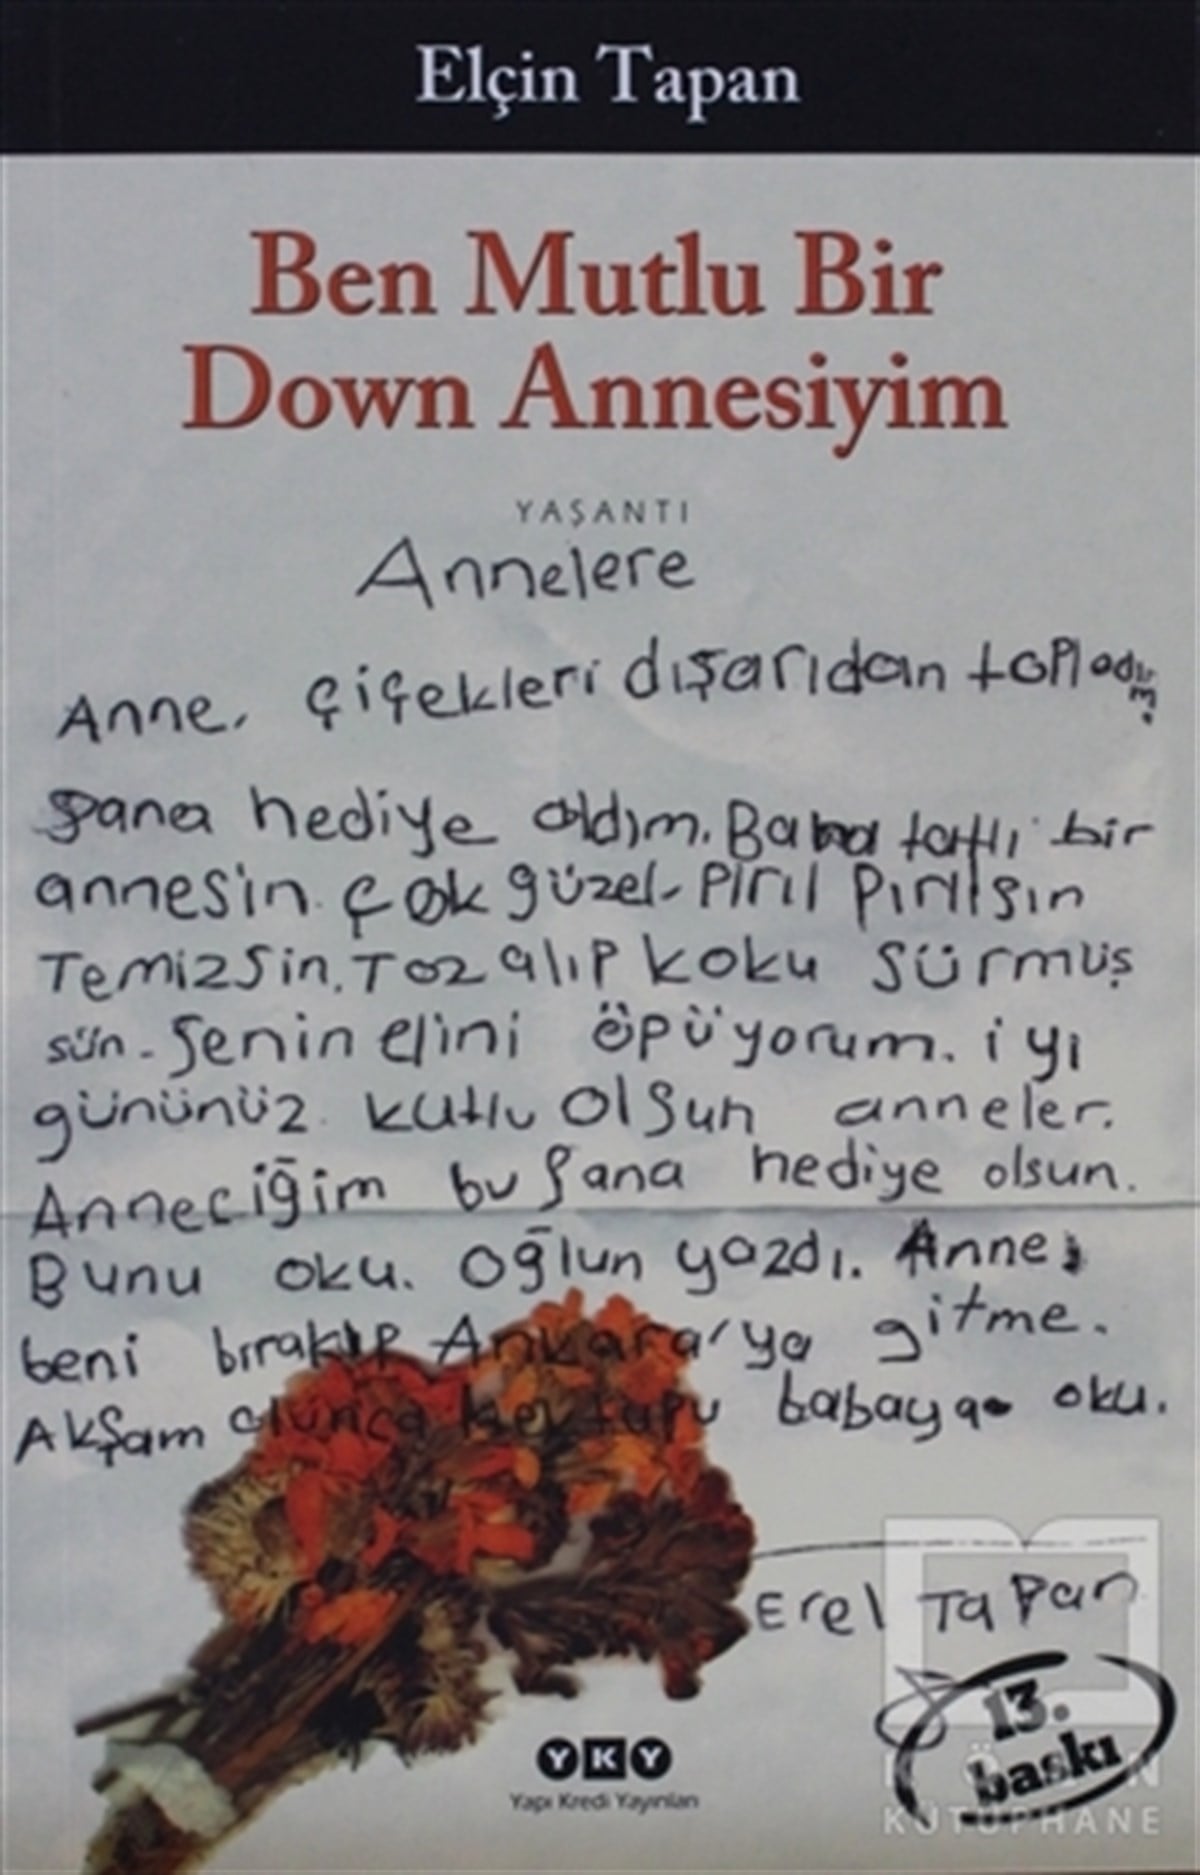 Elçin Tapan
Ben Mutlu Bir
Down Annesiyim
YAŞANTI
Annelere
Anne, çiçekleri dışarıdan topladım.
Sana hediye aldım. Bana tatlı bir
annesin. Çok güzel, Pırıl Pırılsın
Temizsin. Toz alıp koku sürmüş
sün. Senin elini öpüyorum. iyi
gününüz kutlu olsun anneler.
Anneciğim bu Sana hediye olsun.
Bunu oku. Oğlun yazdı. Anne,
beni bırakıp Ankara'ya gitme.
Akşam olunca mektupu babaya oku.
Erel Tapan
13.
baskı
YKY
Yapı Kredi Yayınları
KÜTÜPHANE